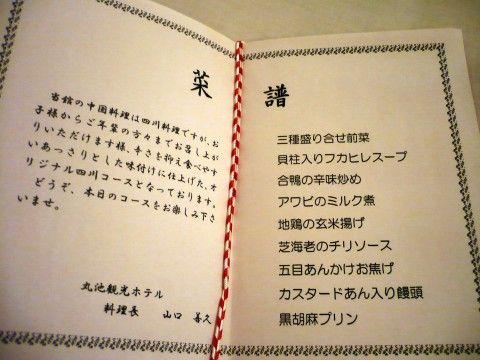 菜 譜
当館の中国料理は四川料理ですが、お
子様からご年輩の方々までお召し上が
りいただけます様、辛さを抑え食べやす
いあっさりとした味付けに仕上げた、オ
リジナル四川コースとなっております。
どうぞ、本日のコースをお楽しみ下さ
いませ。
丸池観光ホテル
料理長 山口 善久
三種盛り合せ前菜
貝柱入りフカヒレスープ
合鴨の辛味炒め
アワビのミルク煮
地鶏の玄米揚げ
芝海老のチリソース
五目あんかけお焦げ
カスタードあん入り饅頭
黒胡麻プリン